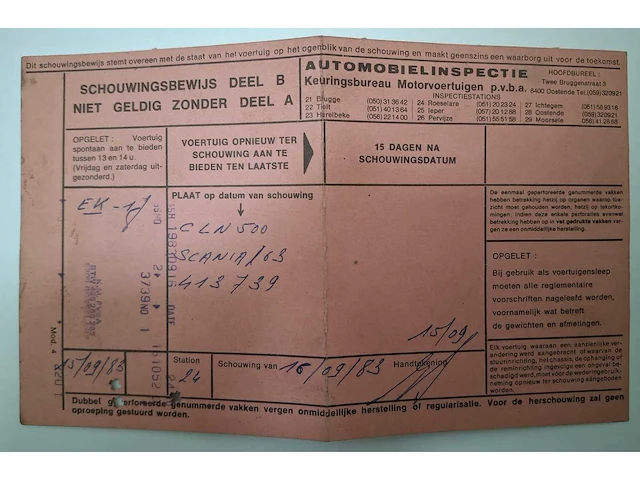 Dit schouwingsbewijs stemt overeen met de staat van het voertuig op het ogenblik van de schouwing en maakt geenszins een waarborg uit voor de toekomst.
SCHOUWINGSBEWIJS DEEL B
NIET GELDIG ZONDER DEEL A
AUTOMOBIELINSPECTIE
Keuringsbureau Motorvoertuigen p.v.b.a.
HOOFDBUREEL :
Twee Bruggenstraat 3
8400 Oostende Tel. (059) 320921
INSPECTIESTATIONS
21 Brugge (050) 31 36 42 24 Roeselare (051) 20 23 24 27 Ichtegem (051) 58 93 16
22 Tielt (051) 40 13 64 25 Ieper (057) 20 12 88 28 Oostende (059) 320921
23 Harelbeke (056) 22 14 00 26 Pervijze (051) 55 51 58 29 Moorsele (056) 41 28 68
OPGELET : Voertuig
spontaan aan te bieden
tussen 13 en 14 u.
(Vrijdag en zaterdag uit-
gezonderd.)
VOERTUIG OPNIEUW TER
SCHOUWING AAN TE
BIEDEN TEN LAATSTE
15 DAGEN NA
SCHOUWINGSDATUM
EK - 17
PLAAT op datum van schouwing
CLN 500
SCANIA/63
413739
15/09
De eenmaal geperforeerde genummerde vakken
hebben betrekking hetzij op organen waarop toe-
zicht moet gehouden worden, hetzij op tekortko-
mingen. Indien deze enkele perforaties evenwel
betrekking hebben op in vet gedrukte vakken ver-
gen ze een onmiddellijke herstelling.
OPGELET :
Bij gebruik als voertuigensleep
moeten alle reglementaire
voorschriften nageleefd worden,
voornamelijk wat betreft
de gewichten en afmatingen.
Elk voertuig waaraan een aanzienlijke ver-
andering werd aangebracht of waarvan de
stuurinrichting, het chassis, de ophanging of
de reminrichting ingevolge een ongeval be-
schadigd werd, moet vóór de wederingebruik-
neming opnieuw ter schouwing aangeboden
worden.
DATE
3739ND
Mod. 4
15/09/83
Station
24
Schouwing van
15/09/83
Handtekening
Dubbel geperforeerde genummerde vakken vergen onmiddellijke herstelling of regularisatie. Voor de herschouwing zal geen
oproeping gestuurd worden.